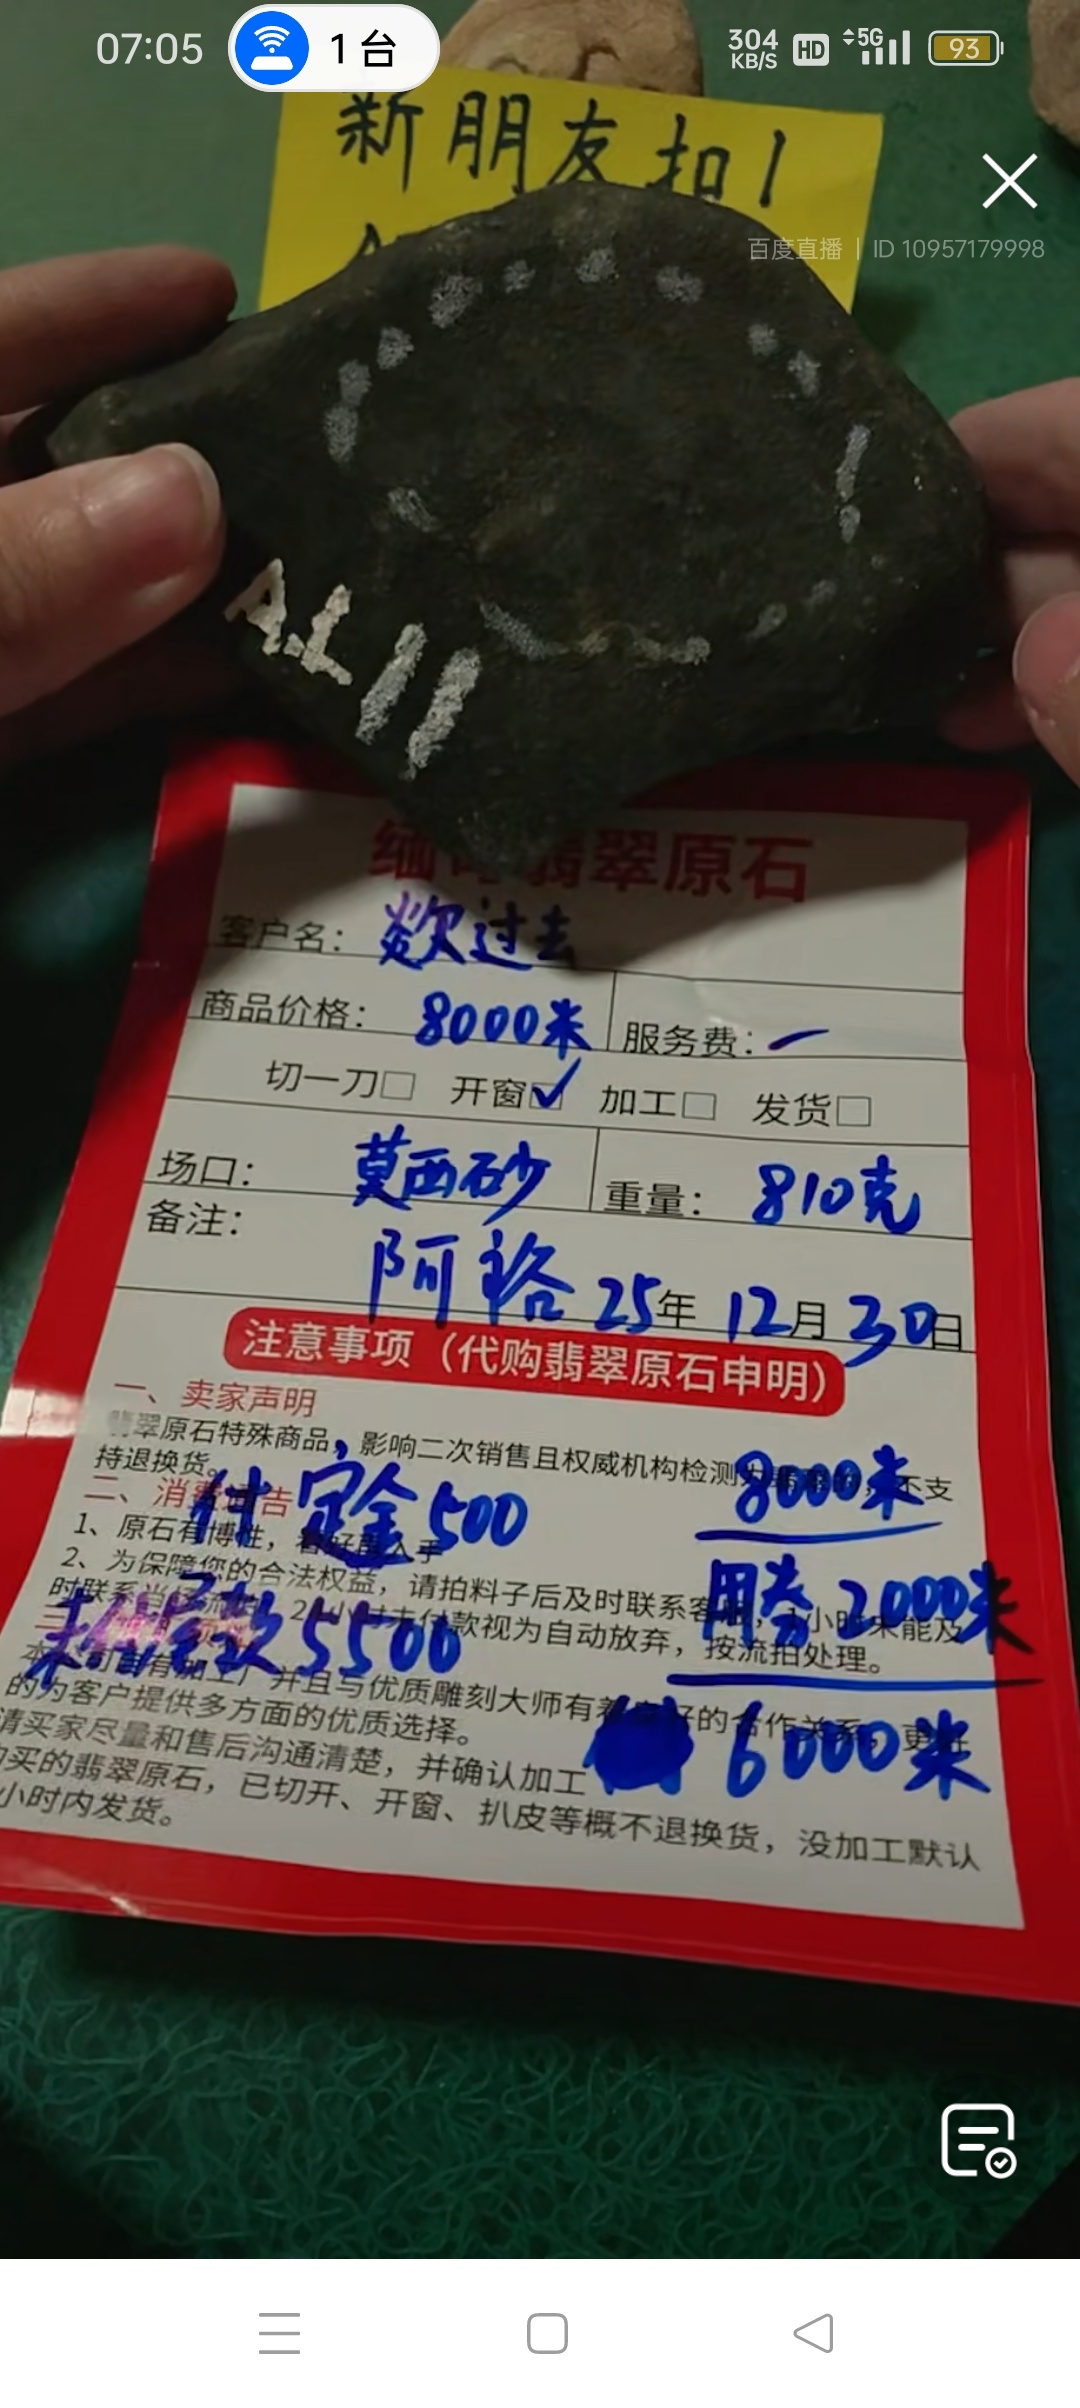 07:05
1 台
304 KB/S HD 5G 93
新朋友扣1
百度直播 | ID 10957179998
A
11
缅 翡翠原石
客户名： 欻过去
商品价格： 8000米 服务费：一
切一刀□ 开窗☑ 加工□ 发货□
场口： 莫西砂 重量： 810克
备注：
阿裕 25年 12月 30日
注意事项（代购翡翠原石申明）
一、卖家声明
翡翠原石特殊商品，影响二次销售且权威机构检测 不支
持退换货。
8000米
二、消费 告
付定金500
1、原石有博性， 入手
2、为保障您的合法权益，请拍料子后及时联系客 小时未能及
用券2000米
时联系 付款视为自动放弃，按流拍处理。
未付尾款5500
并且与优质雕刻大师有着 好的合作关系，更
的为客户提供多方面的优质选择。
6000米
请买家尽量和售后沟通清楚，并确认加工
买的翡翠原石，已切开、开窗、扒皮等概不退换货，没加工默认
小时内发货。